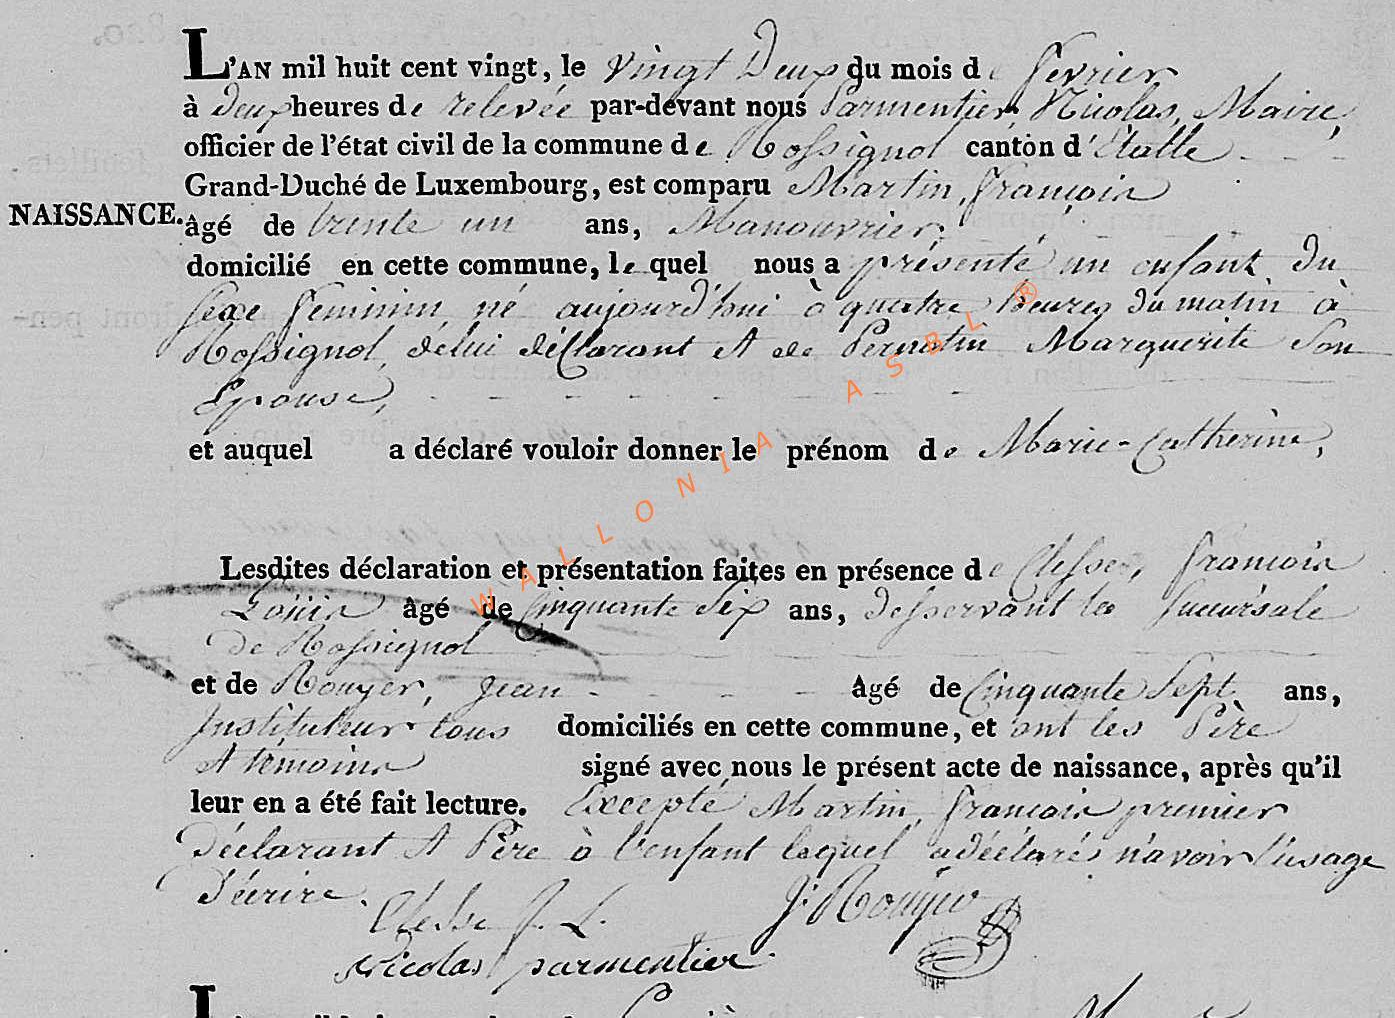 L'AN mil huit cent vingt, le vingt Deux du mois de fevrier
à deux heures de relevée par-devant nous Parmentier, Nicolas, Maire,
officier de l'état civil de la commune de Rossignol canton d'Etalle
Grand-Duché de Luxembourg, est comparu Martin, françois
NAISSANCE. âgé de trente un ans, Manouvrier,
domicilié en cette commune, le quel nous a présenté un enfant du
sexe feminin né aujourd'hui à quatre heures du matin à
Rossignol, de lui déclarant et de Pernotin Marguerite son
Epouse,
et auquel a déclaré vouloir donner le prénom de Marie-Catherine,
Lesdites déclaration et présentation faites en présence de Clesse, francois
Louis âgé de Cinquante Six ans, desservant la succursale
de Rossignol
et de Rouyer, jean âgé de Cinquante Sept ans,
Instituteur tous domiciliés en cette commune, et ont les Père
et témoins signé avec nous le présent acte de naissance, après qu'il
leur en a été fait lecture. Excepté Martin, francois premier
Déclarant et Père à l'enfant lequel a déclaré n'avoir l'usage
d'écrire.
Clesse f. L. J. Rouyer
Nicolas parmentier
WALLONIA ASBL ®